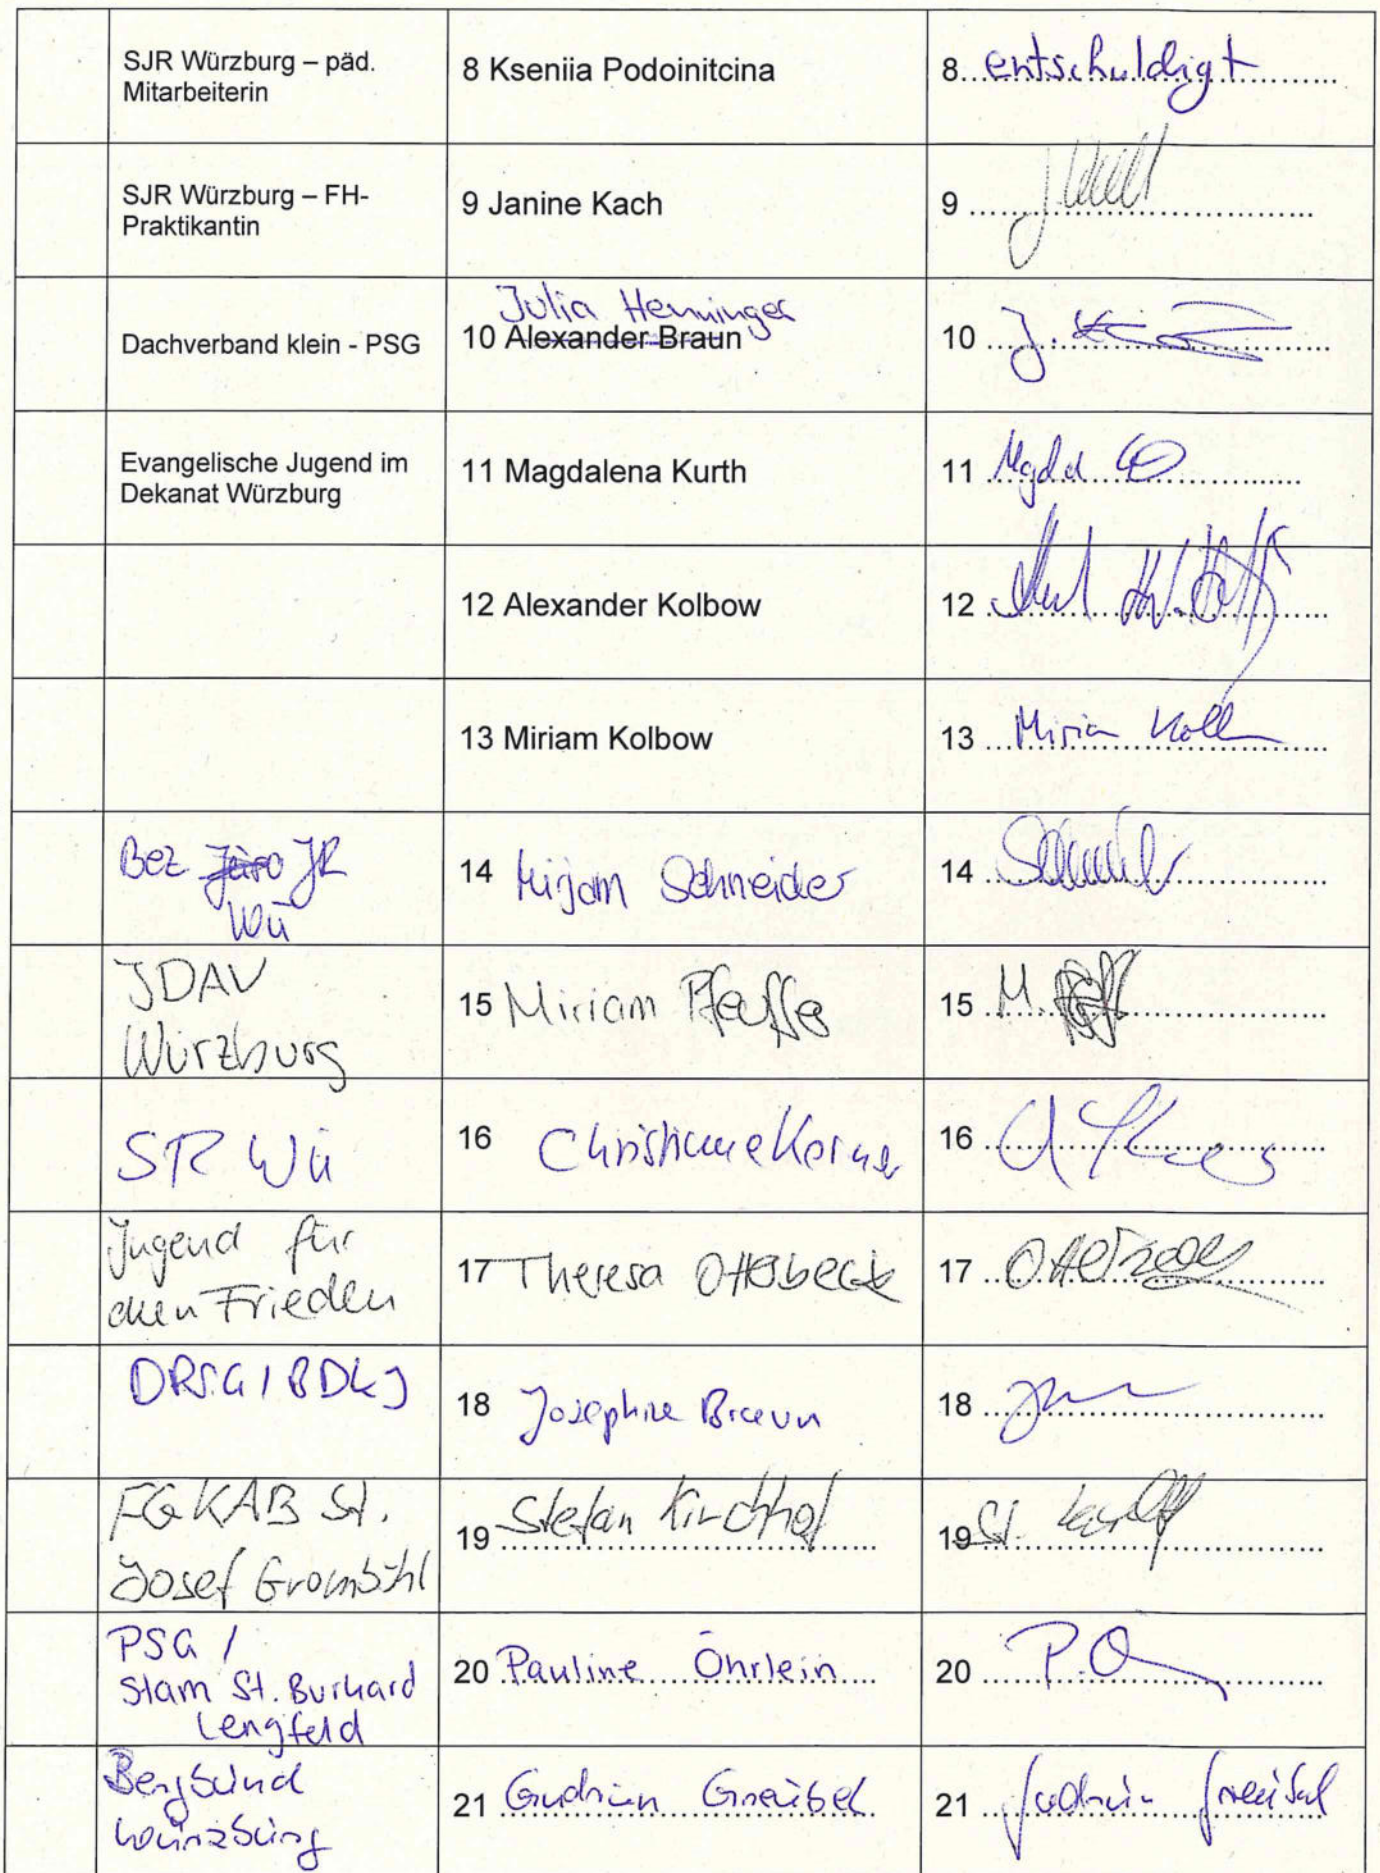 SJR Würzburg – päd.
Mitarbeiterin
8 Kseniia Podoinitcina
8 entschuldigt
SJR Würzburg – FH-
Praktikantin
9 Janine Kach
9
Dachverband klein - PSG
Julia Henninger
10 Alexander Braun
10 J.
Evangelische Jugend im
Dekanat Würzburg
11 Magdalena Kurth
11
12 Alexander Kolbow
12
13 Miriam Kolbow
13 Miriam
Bez JR
Wü
14 Mirjam Schneider
14
JDAV
Würzburg
15 Miriam Pfeffer
15 M.
SR Wü
16 Christiane Kerner
16
Jugend für
den Frieden
17 Theresa Otterbeck
17
BDKJ
18 Josephine Braun
18
KAB St.
Josef Grombühl
19 Stefan Kirchhof
19 St.
PSG /
Stam St. Burkard
Lengfeld
20 Pauline Öhrlein
20 P.
Bergbund
Würzburg
21 Gudrun Greubel
21 Gudrun Greubel